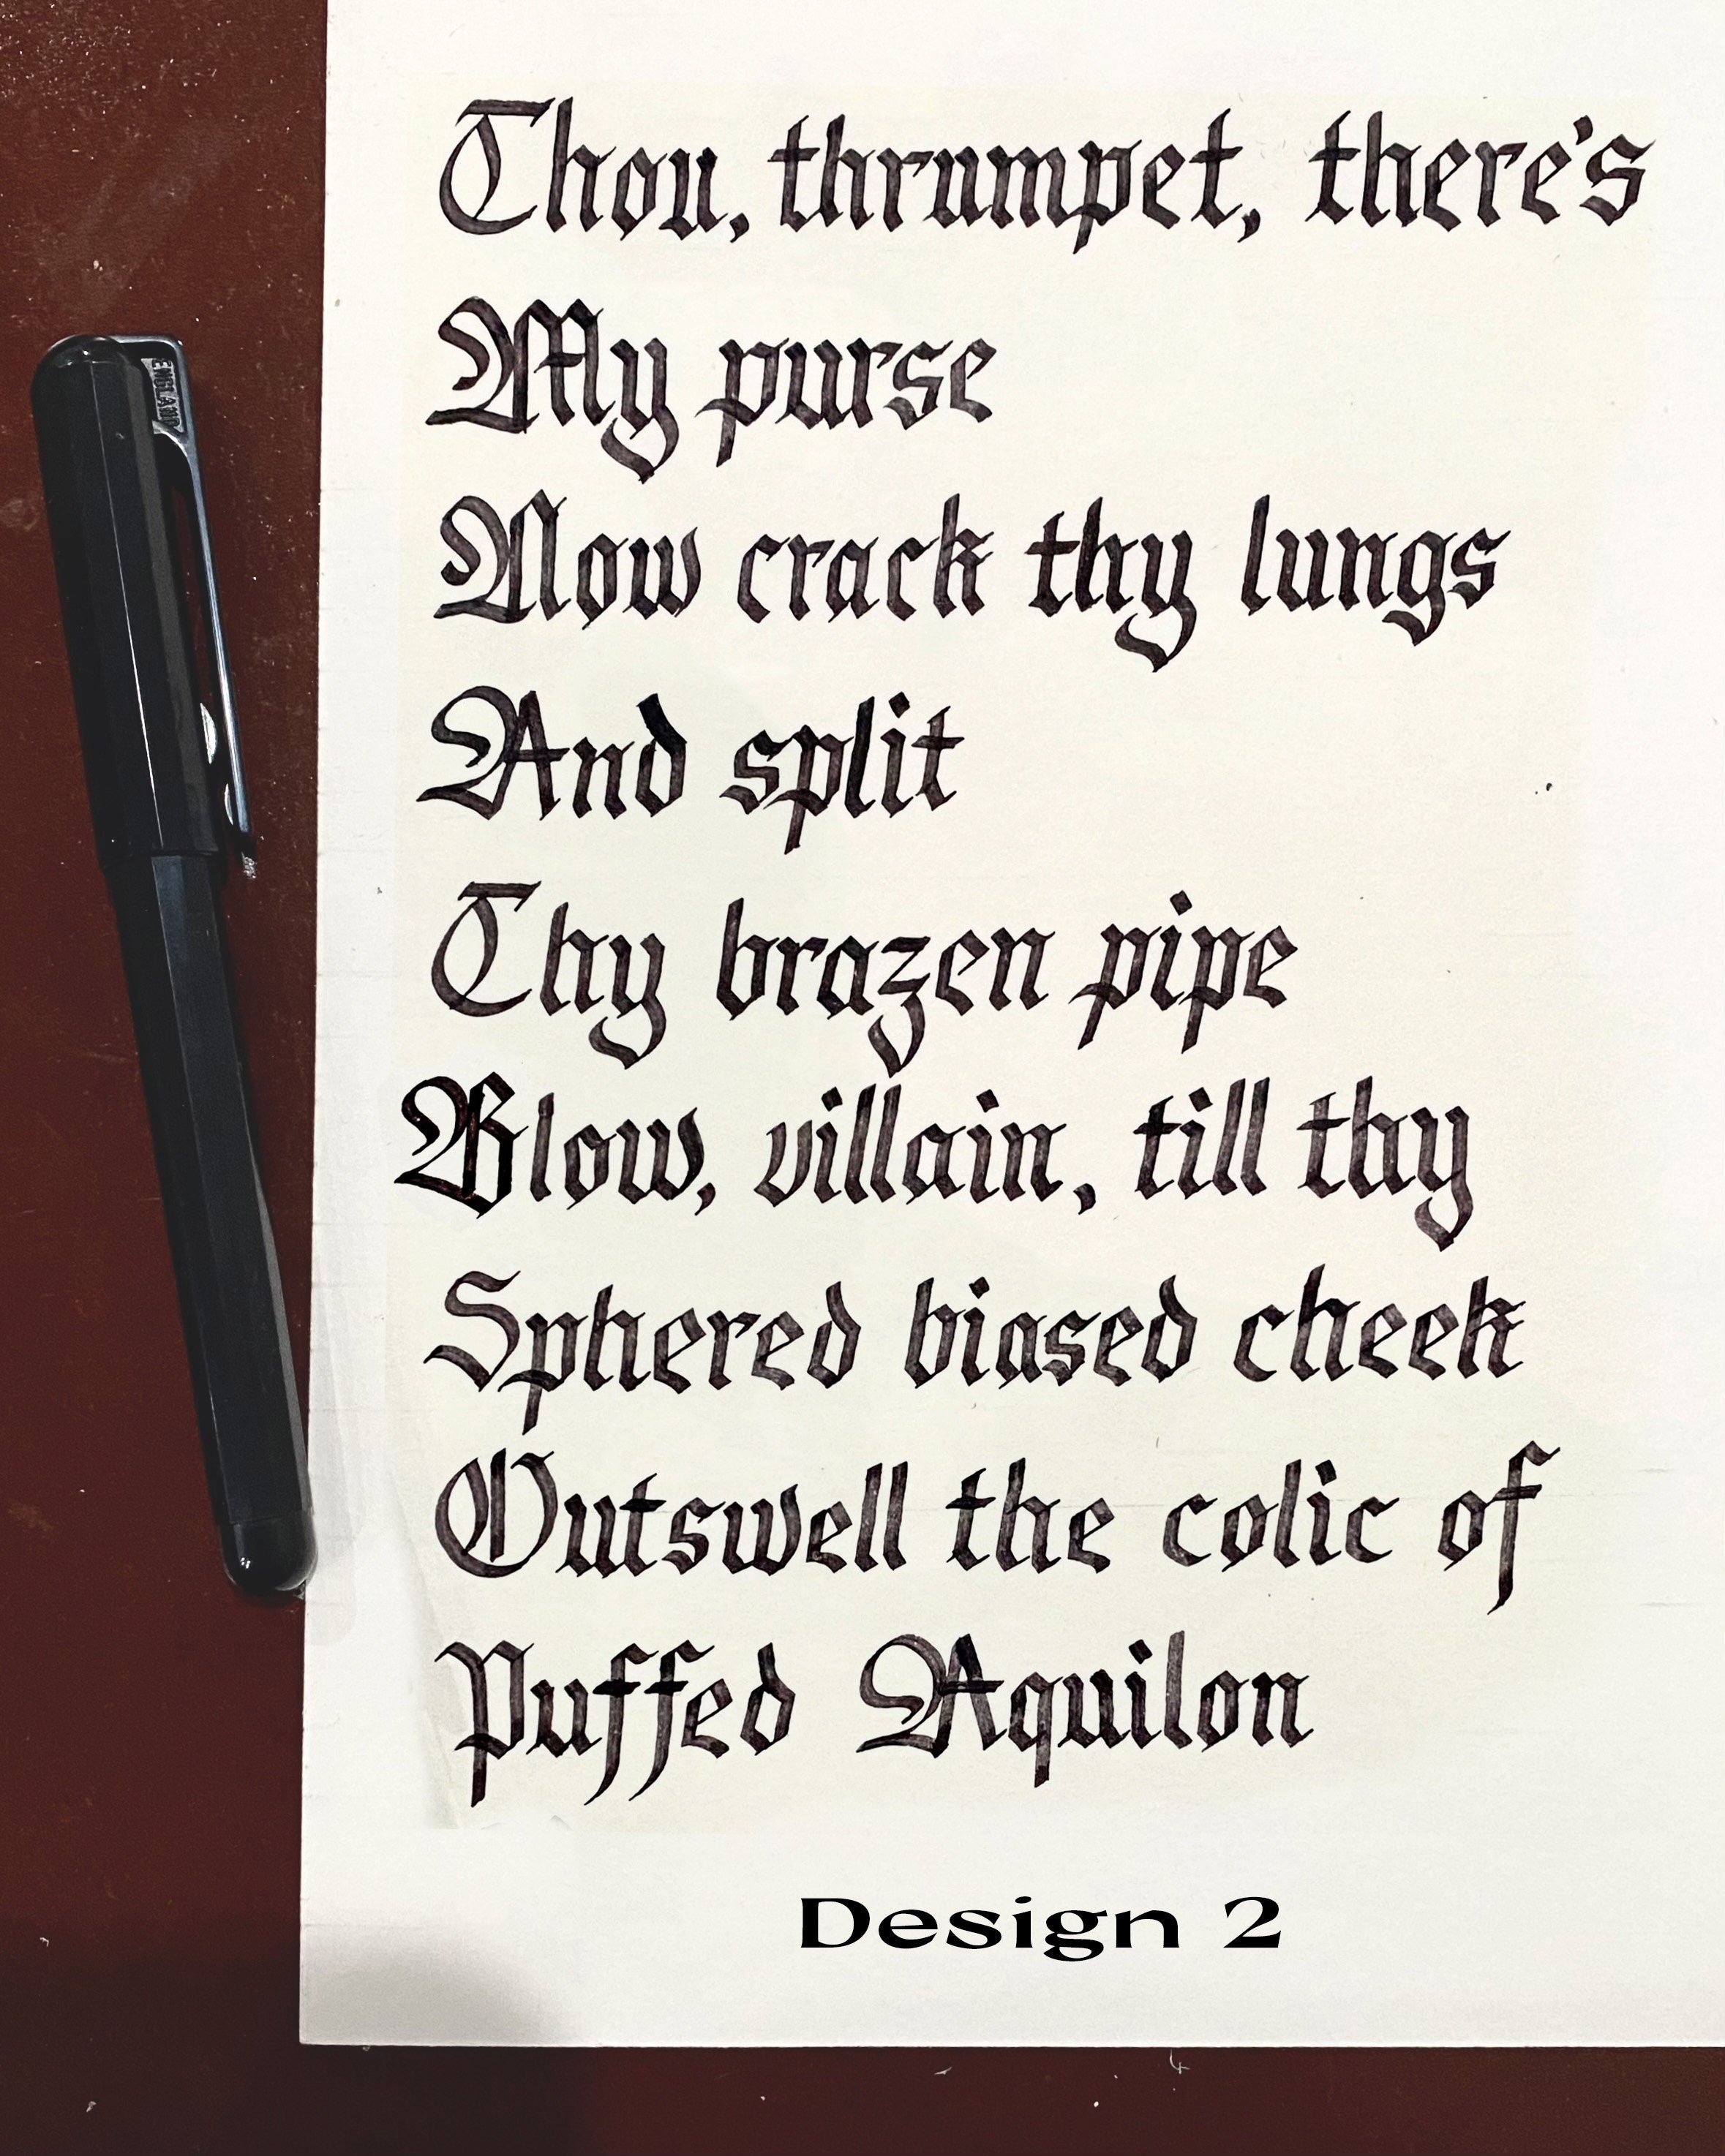 Thou, thrumpet, there's
My purse
Now crack thy lungs
And split
Thy brazen pipe
Blow, villain, till thy
Sphered biased cheek
Outswell the colic of
Puffed Aquilon
Design 2
ENGLAND